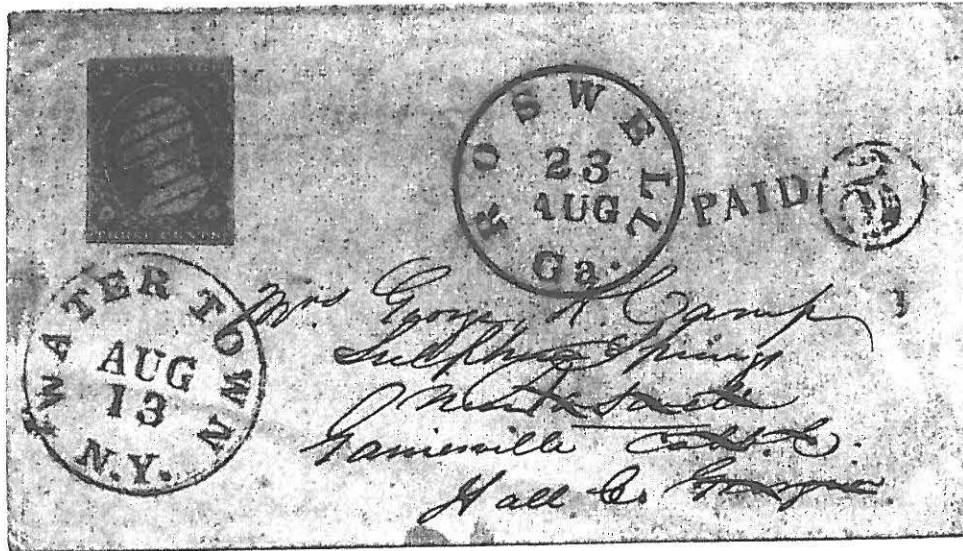 THREE CENTS
ROSWELL
23
AUG
Ga.
PAID
WATERTOWN
AUG
13
N.Y.
Mrs George H. Camp
Sulphur Springs
Gainesville
Hall Co. Georgia